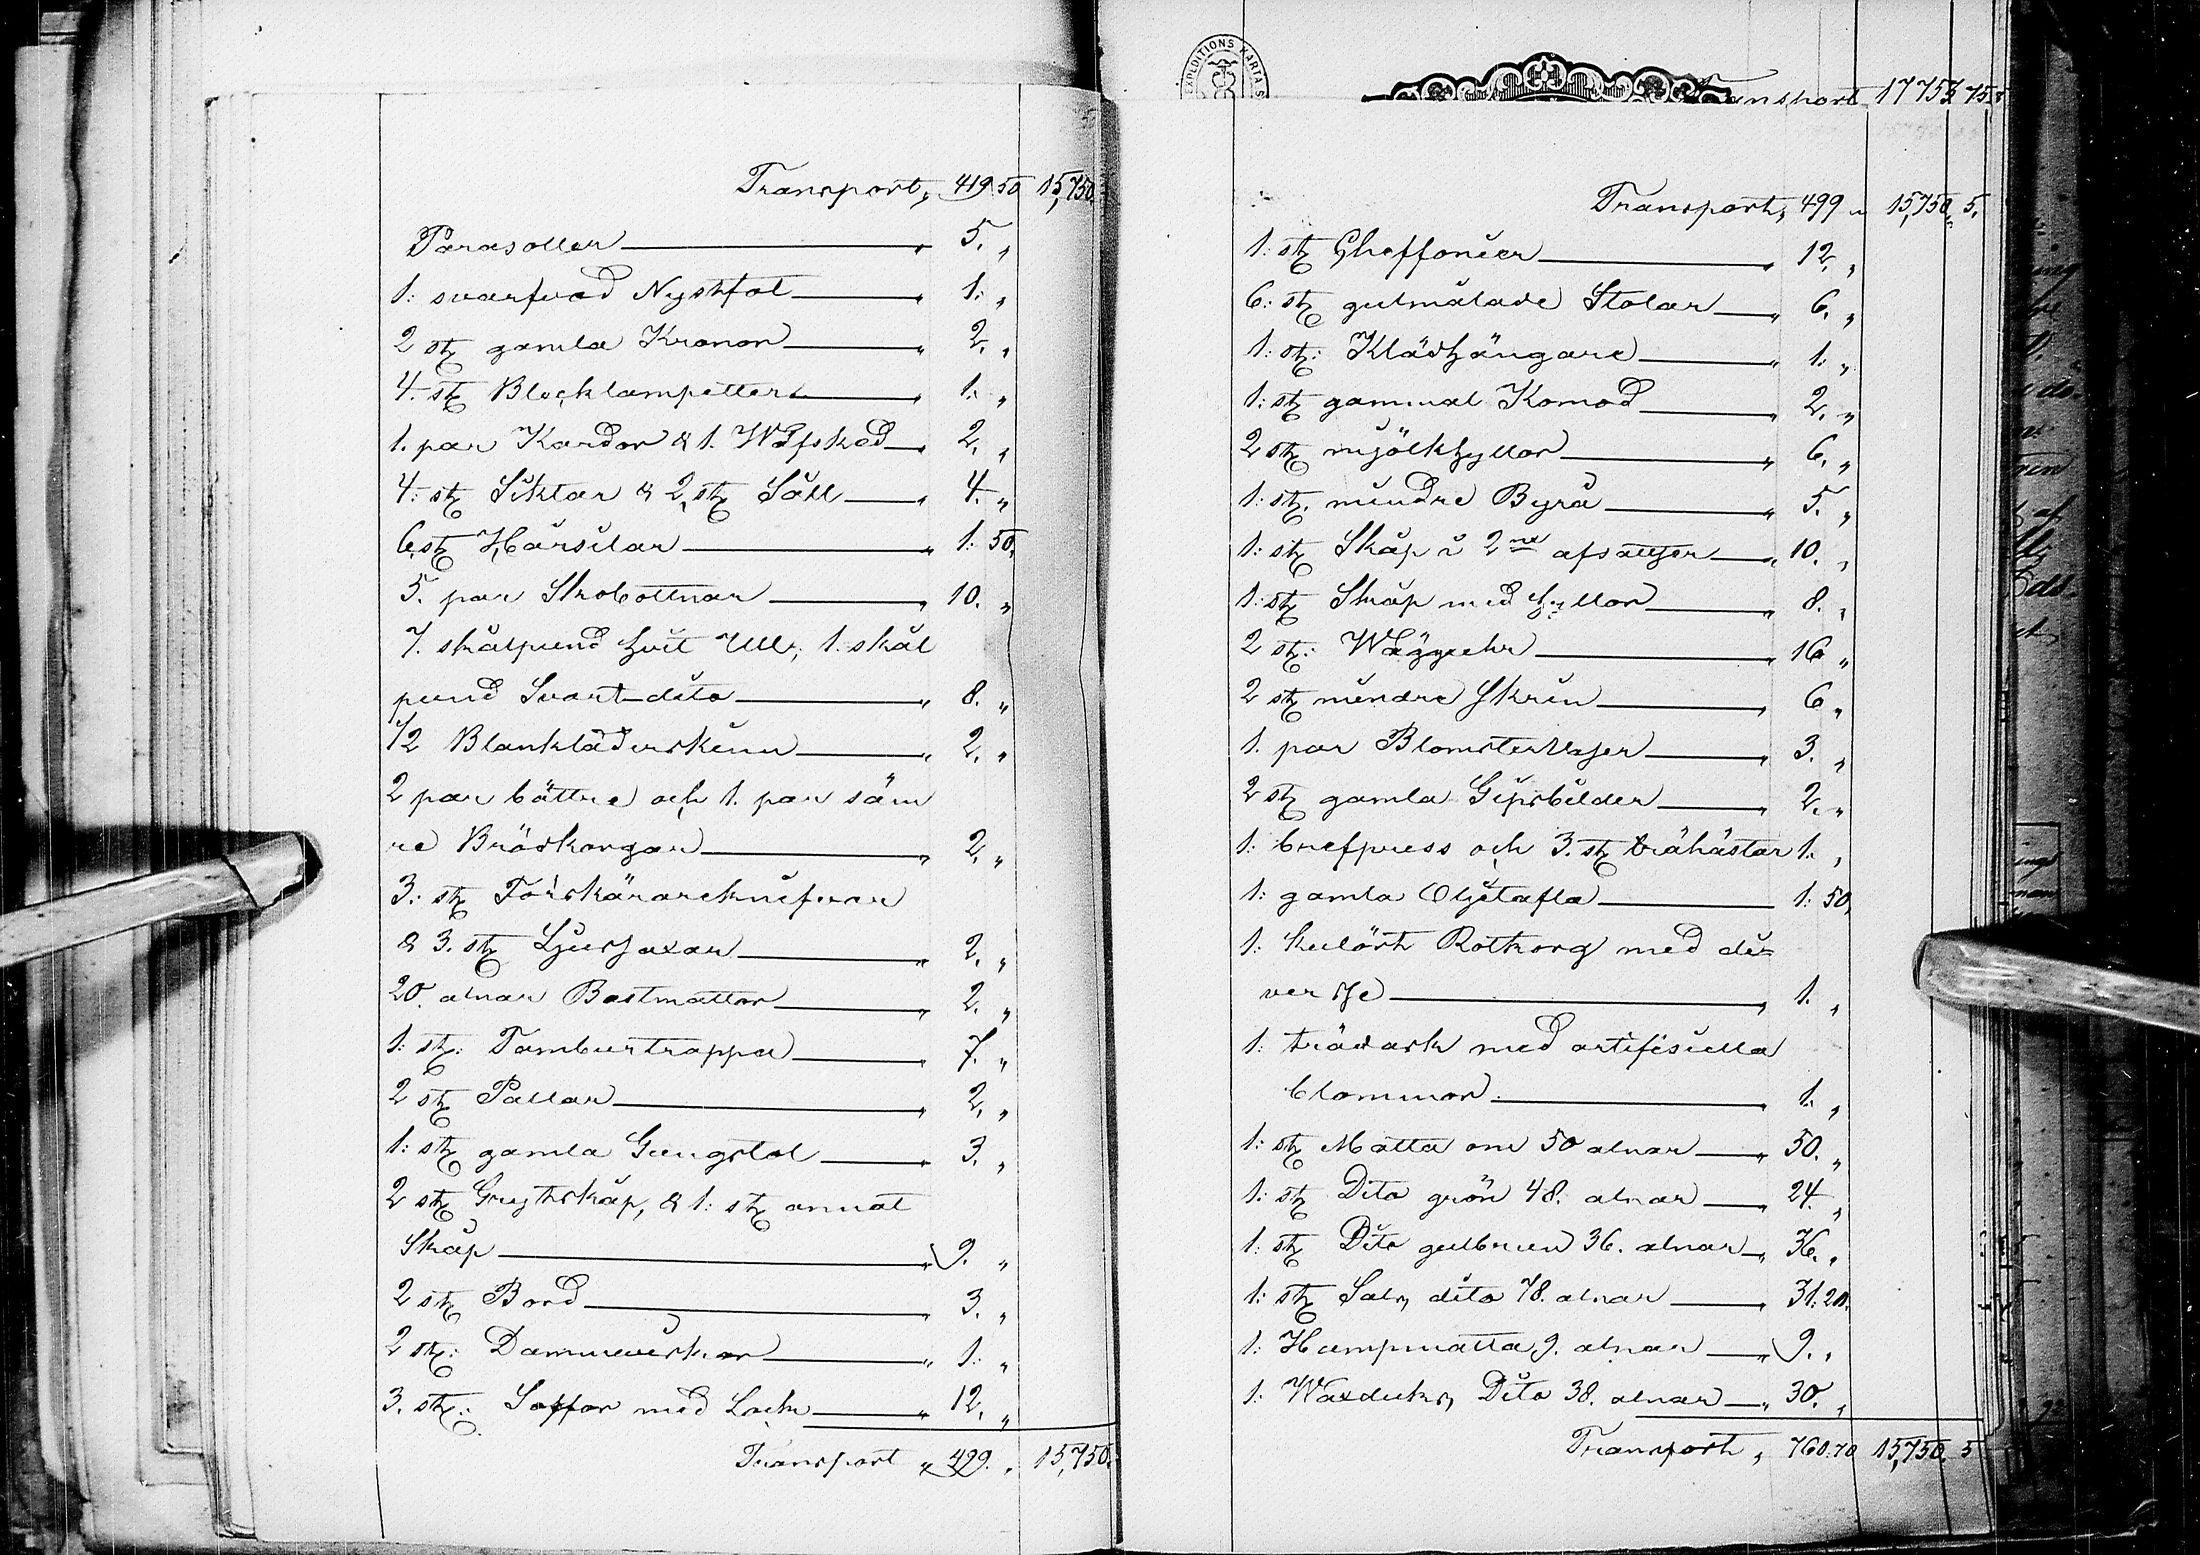 Transport, 419.50 15,750.
Parasoller " 5. "
1: svarfvad Nystfol " 1. "
2 stz gamla Kronor " 2. "
4. stz Blecklampetter " 1. "
1. par Kardor & 1. Wäfsked " 2. "
4: stz Siktar & 2 stz Såll " 4. "
6 stz Hårsilar " 1: 50.
5. par Skobottnar " 10. "
7. skålpund hvit Ull, 1. skål
pund Svart dito " 8. "
1/2 Blankläderskinn " 2. "
2 par bättre och 1. par säm
re Brödkorgar " 2. "
3: stz Förskärareknifvar
& 3. stz Ljussaxar " 2. "
20. alnar Bastmattor " 2. "
1: stz: Tamburtrappa " 7. "
2 stz Pallar " 2. "
1: stz gamla Gungstol " 3. "
2 stz Grythskåp, & 1: stz annat
Skåp " 9. "
2 stz Bord " 3. "
2 stz: Dammviskor " 1: "
3. stz: Soffor med Lock " 12. "
Transport " 499. " 15,750.
EXPEDITIONS KARTA S
Transport 17753 75
Transport, 499 " 15,750 " 5.
1: stz Cheffonier " 12. "
6: stz gulmålade Stolar " 6. "
1: st: Klädhängare " 1: "
1: stz gammal Komod " 2. "
2 stz mjölkhyllor " 6. "
1: stz. mindre Byrå " 5. "
1: stz Skåp i 2ne afsatser " 10. "
1: stz Skåp med hyllor " 8. "
2 st: Vägguhr " 16 "
2 stz mindre Skrin " 6 "
1. par Blomstervaser " 3. "
2 stz gamla Gipsbilder " 2. "
1: brefpress och 3. stz trähästar 1. "
1: gamla Oljetafla 1: 50.
1: kulört Rotkorg med di=
verse " 1. "
1: trädask med artifisiella
blommor " 1. "
1: stz Matta om 50 alnar " 50. "
1: stz Dito grön 48. alnar " 24. "
1: stz Dito gulbrun 36. alnar " 36. "
1: stz Sals dito 78. alnar " 31: 20.
1: Hampmatta 9. alnar " 9. "
1: Waxduks Dito 38. alnar " 30. "
Transport " 760.70 15,750. 5